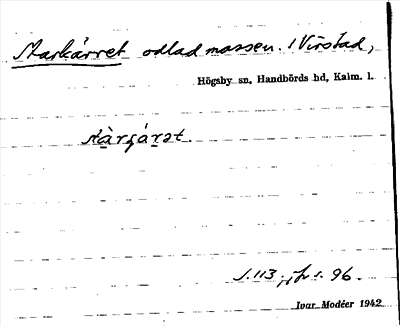 Markärret odlad mossen. i Virstad,
Högsby sn, Handbörds hd, Kalm. l.
S. 113, jfr s. 96.
Ivar Modéer 1942